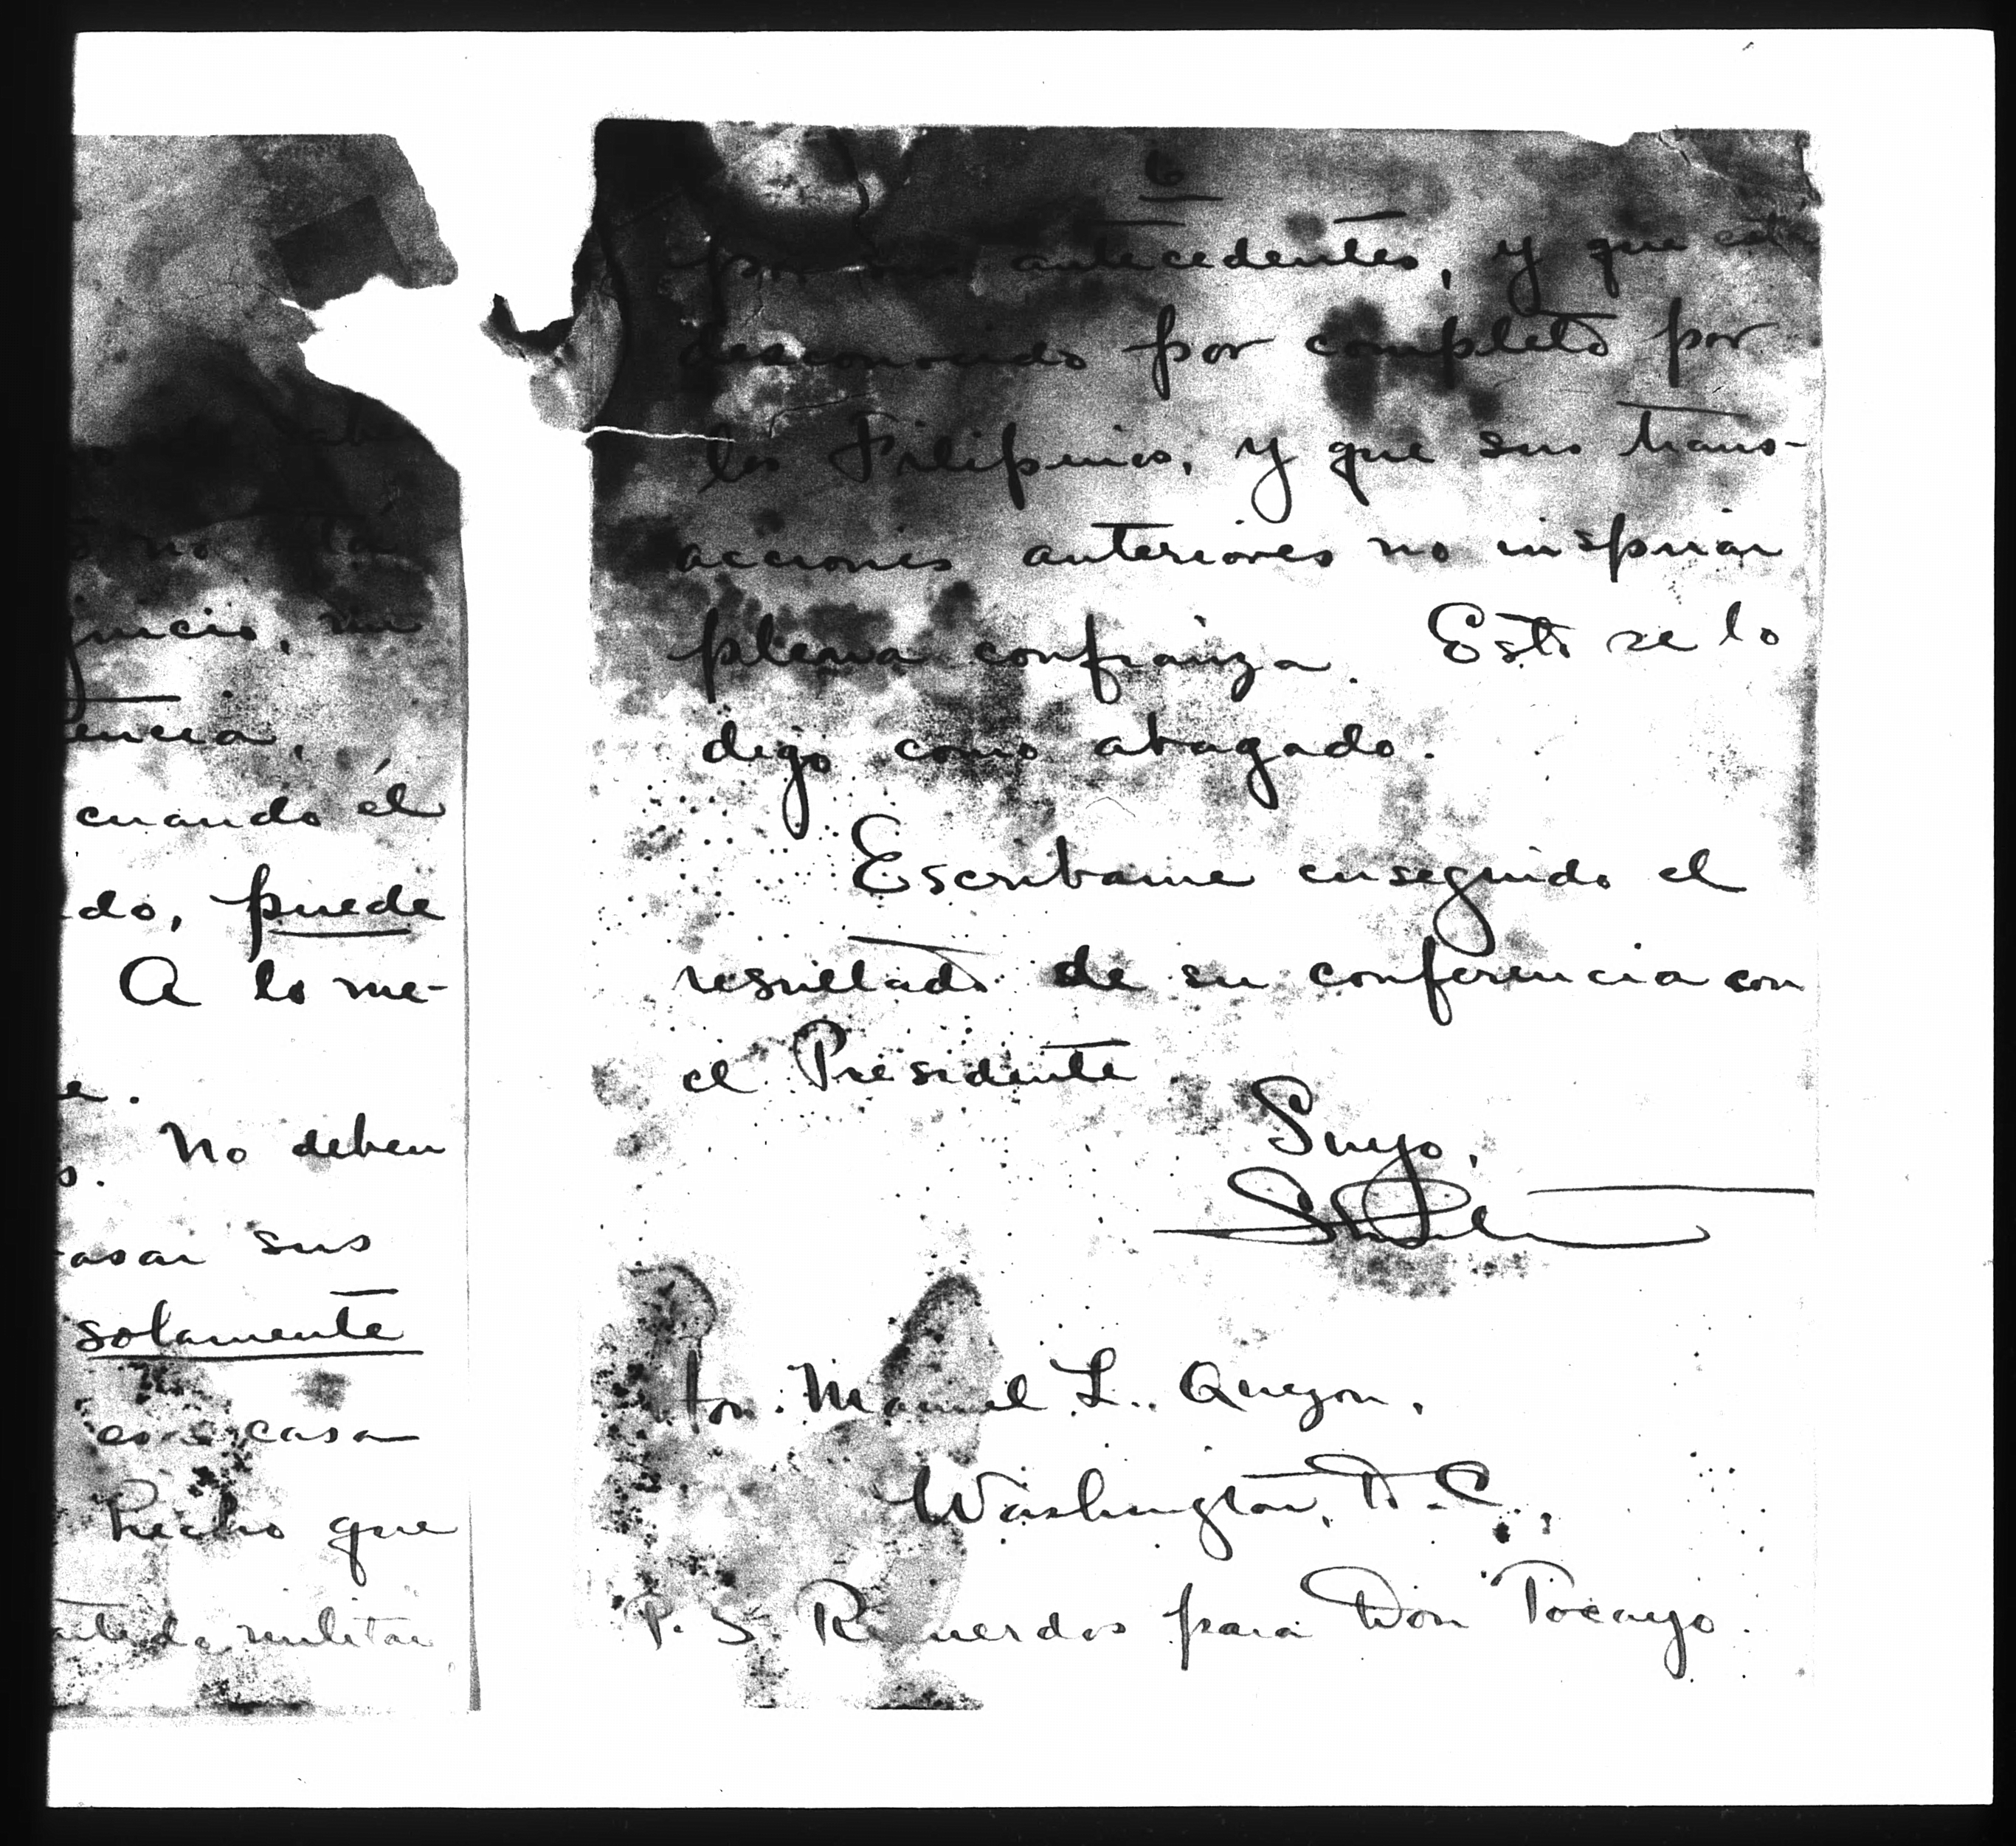 no está
juicio, un
encia.
cuando él
do, puede
A lo me-
No deben
asar sus
solamente
esa casa
hecho que
militar
6
por sus antecedentes, y que está
desconocido por completo por
los Filipinos, y que sus trans-
acciones anteriores no inspiran
plena confianza. Esto se lo
digo como abogado.
Escribame enseguida el
resultado de su conferencia con
el Presidente
Suyo,
Hon. Manuel L. Quezon,
Washington, D.C.,
P. S. Recuerdos para Don Tocayo.